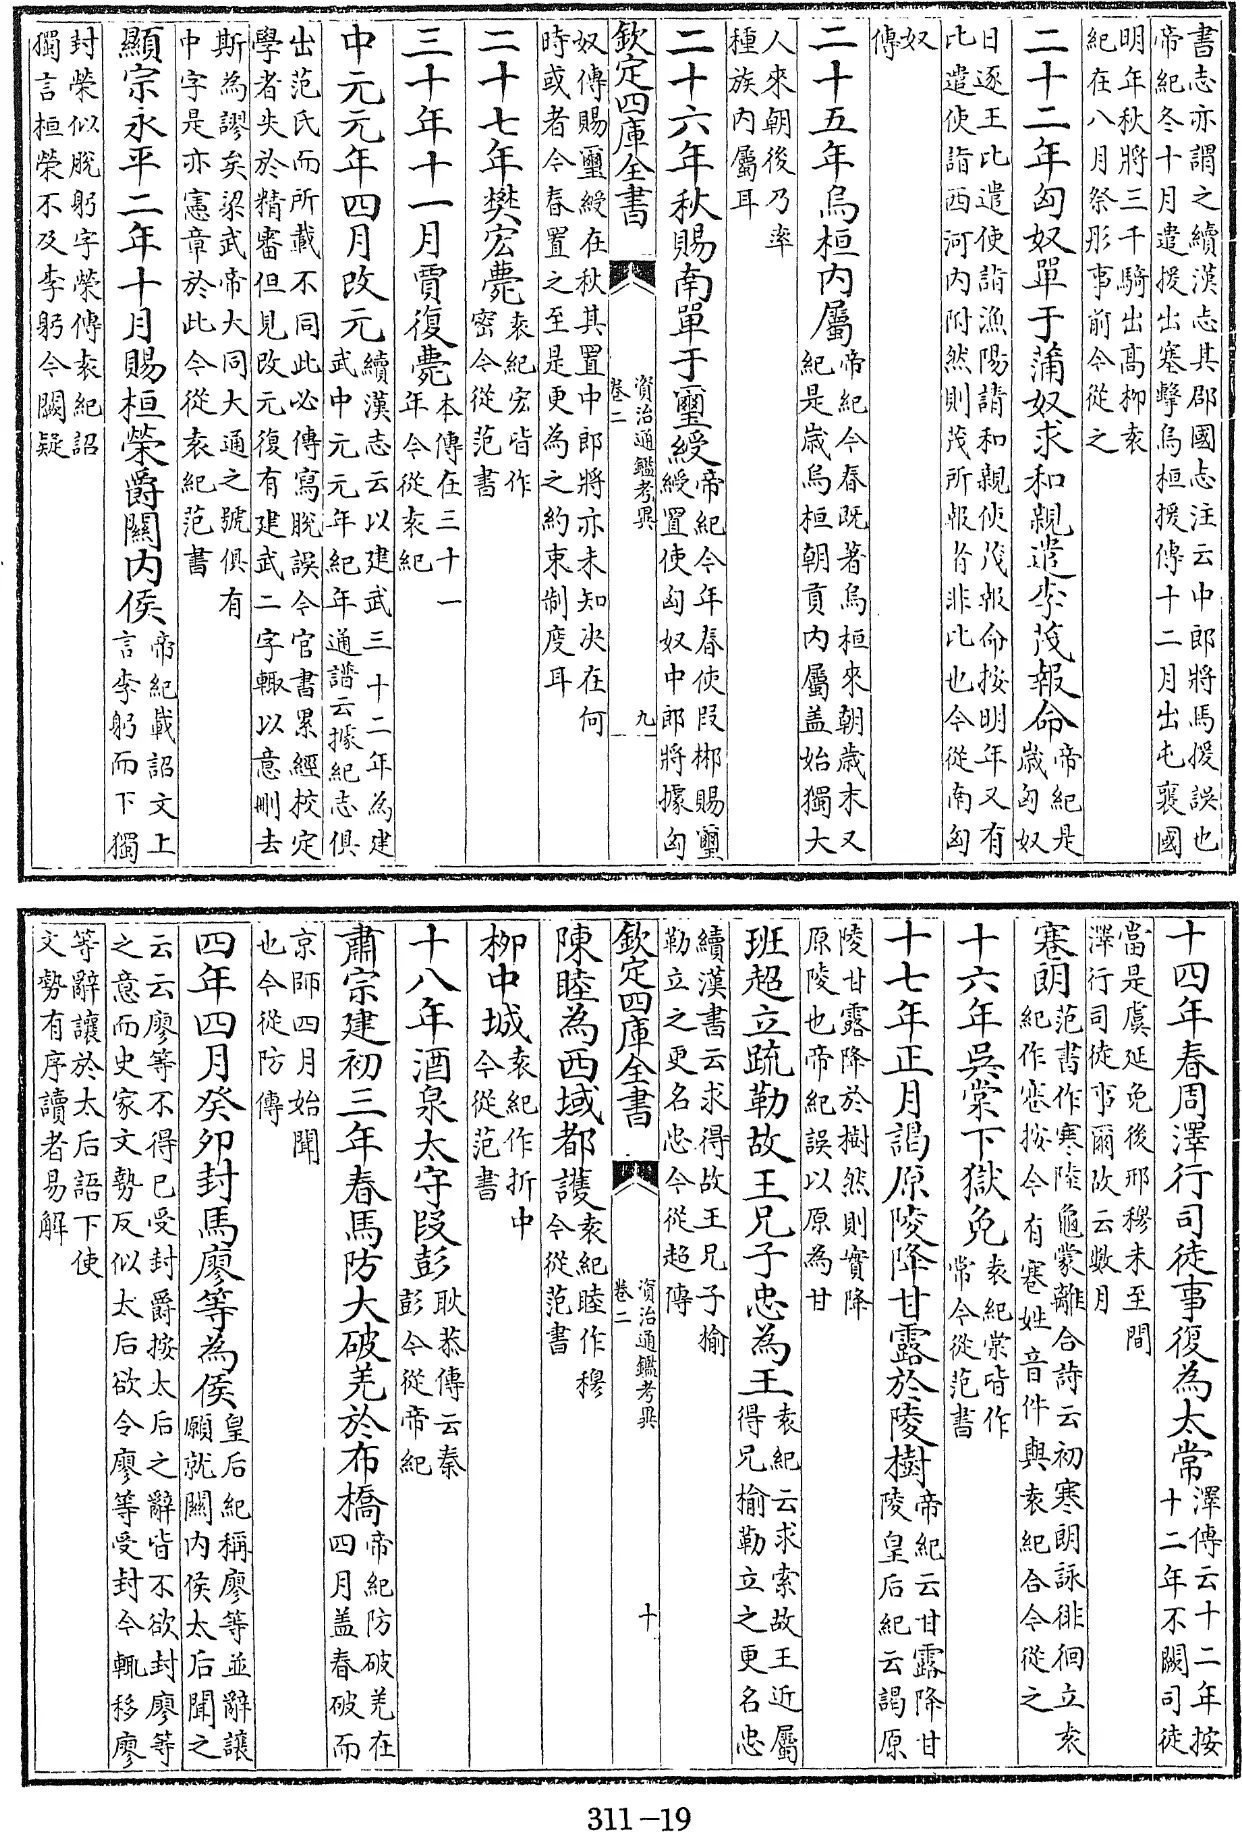 書志亦謂之續漢志其郡國志注云中郎將馬援誤也
帝紀冬十月遣援出塞擊烏桓援傳十二月出屯襄國
明年秋將三千騎出髙柳袁
紀在八月祭肜事前今從之
二十二年匈奴單于蒲奴求和親遣李茂報命帝紀是
歳匈奴
日逐王比遣使詣漁陽請和親使茂報命按明年又有
比遣使詣西河内附然則茂所報者非比也今從南匈
奴
傳
二十五年烏桓内屬帝紀今春既著烏桓來朝歳末又
紀是歳烏桓朝貢内屬盖始獨大
人來朝後乃率
種族内屬耳
二十六年秋賜南單于璽綬帝紀今年春使段郴賜璽
綬置使匈奴中郎將據匈
欽定四庫全書
資治通鑑考異
卷二
九
奴傳賜璽綬在秋其置中郎將亦未知决在何
時或者今春置之至是更為之約束制度耳
二十七年樊宏薨袁紀宏皆作
密今從范書
三十年十一月賈復薨本傳在三十一
年今從袁紀
中元元年四月改元續漢志云以建武三十二年為建
武中元元年紀年通譜云據紀志俱
出范氏而所載不同此必傳寫脱誤今官書累經校定
學者失於精審但見改元復有建武二字輒以意刪去
斯為謬矣梁武帝大同大通之號俱有
中字是亦憲章於此今從袁紀范書
顯宗永平二年十月賜桓榮爵關内侯帝紀載詔文上
言李躬而下獨
封榮似脱躬字榮傳袁紀詔
獨言桓榮不及李躬今闕疑
十四年春周澤行司徒事復為太常澤傳云十二年按
十二年不闕司徒
當是虞延免後邢穆未至間
澤行司徒事爾故云數月
寋朗范書作寒陸龜蒙離合詩云初寒朗詠徘徊立袁
紀作寋按今有寋姓音件與袁紀合今從之
十六年吳棠下獄免袁紀棠皆作
常今從范書
十七年正月謁原陵降甘露於陵樹帝紀云甘露降甘
陵皇后紀云謁原
陵甘露降於樹然則實降
原陵也帝紀誤以原為甘
班超立疏勒故王兄子忠為王袁紀云求索故王近屬
得兄榆勒立之更名忠
續漢書云求得故王兄子榆
勒立之更名忠今從超傳
欽定四庫全書
資治通鑑考異
卷二
十
陳睦為西域都護袁紀睦作穆
今從范書
柳中城袁紀作折中
今從范書
十八年酒泉太守段彭耿恭傳云秦
彭今從帝紀
肅宗建初三年春馬防大破羌於布橋帝紀防破羌在
四月盖春破而
京師四月始聞
也今從防傳
四年四月癸卯封馬廖等為侯皇后紀稱廖等並辭讓
願就關内侯太后聞之
云云廖等不得已受封爵按太后之辭皆不欲封廖等
之意而史家文勢反似太后欲令廖等受封今輒移廖
等辭讓於太后語下使
文勢有序讀者易解
311-19